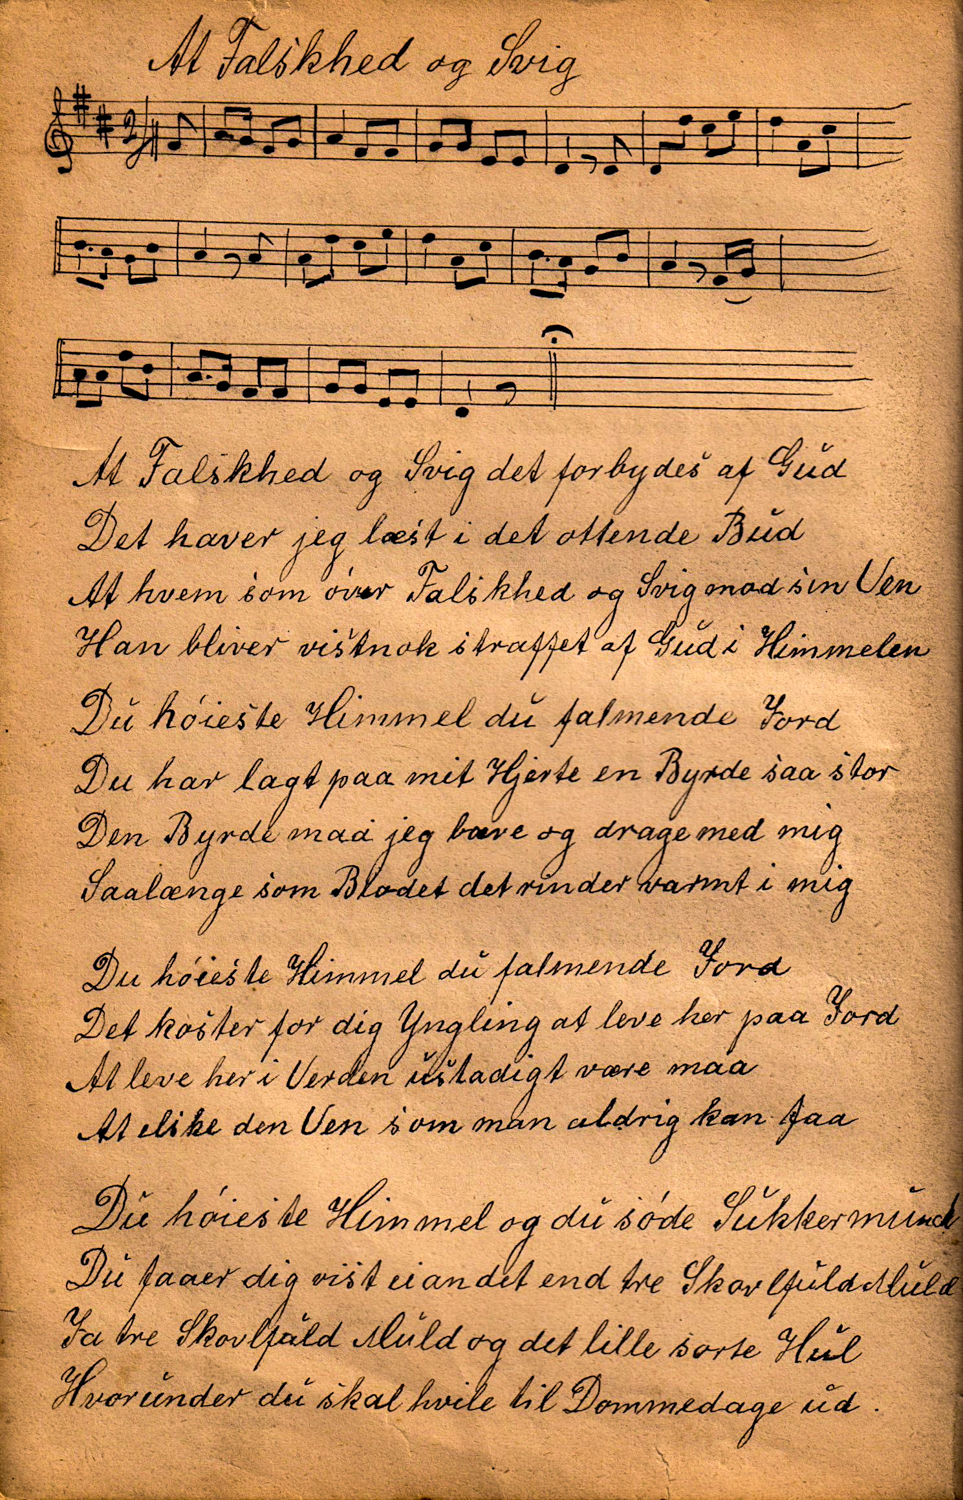 At Falskhed og Svig
At Falskhed og Svig det forbydes af Gud
Det haver jeg læst i det ottende Bud
At hvem som óver Falskhed og Svig mod sin Ven
Han bliver vistnok straffet af Gud i Himmelen
Du hóieste Himmel du falmende Jord
Du har lagt paa mit Hjerte en Byrde saa stor
Den Byrde maa jeg bære og drage med mig
Saalænge som Blodet det rinder varmt i mig
Du hóieste Himmel du falmende Jord
Det koster for dig Yngling at leve her paa Jord
At leve her i Verden ustadigt være maa
At elske den Ven som man aldrig kan faa
Du hóieste Himmel og du sóde Sukkermund
Du faaer dig vist ei andet end tre Skovlfuld Muld
Ja tre Skovlfuld Muld og det lille sorte Hul
Hvorunder du skal hvile til Dommedage ud.